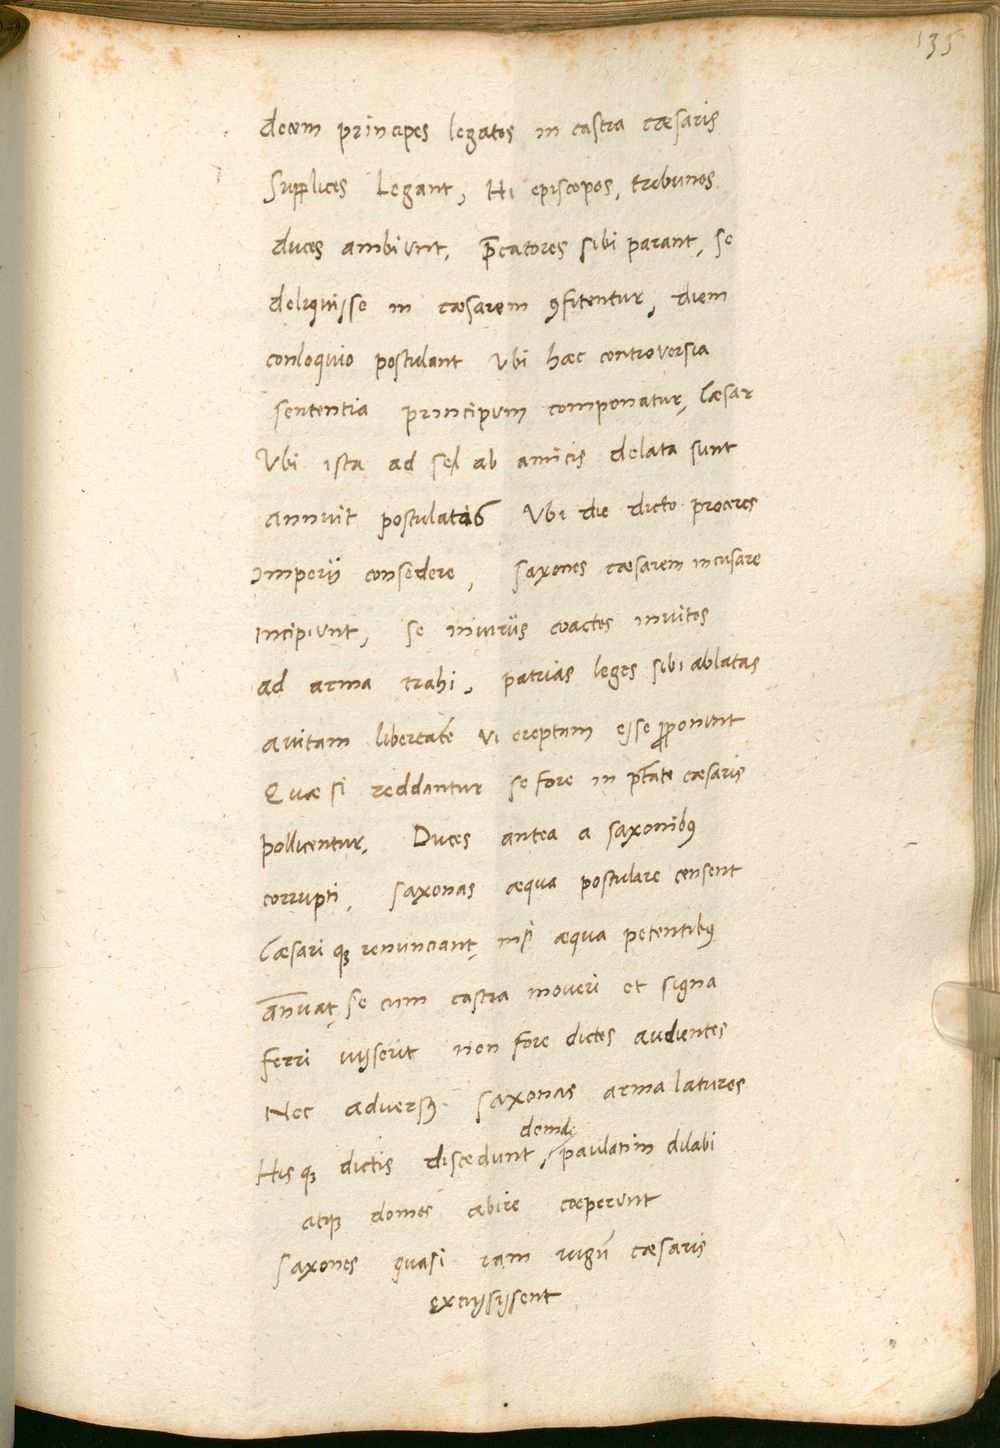 135
decem principes legatos in castra cæsaris
Supplices Legant, Hi episcopos, tribunos
duces ambiunt, p̄catores sibi parant, se
deliquisse in cæsarem ꝯfitentur, diem
conloquio postulant Vbi hæc controversia
sententia principum componatur, Cæsar
Vbi ista ad se ab amicis delata sunt
annuit postulatis Vbi die dicto proceres
Imperij consedere, Saxones cæsarem incusare
incipiunt, se iniuriis coactos invitos
ad arma trahi, patrias leges sibi ablatas
avitam libertatē vi ereptam esse ꝓponunt
Quæ si reddantur se fore in ptāte cæsaris
pollicentur, Duces antea a saxonibꝰ
corrupti, Saxonas æqua postulare censent
Cæsari qꝫ renunciant, nisi æqua petentibꝰ
an̄uat, se cum castra moveri et signa
ferri iusserit non fore dictos audientes
Nec adversꝰ Saxonas arma laturos
deindꝫ
His qꝫ dictis discedunt, paulatim dilabi
atqꝫ domos abire cœperunt
Saxones quasi iam iugū cæsaris
excussissent